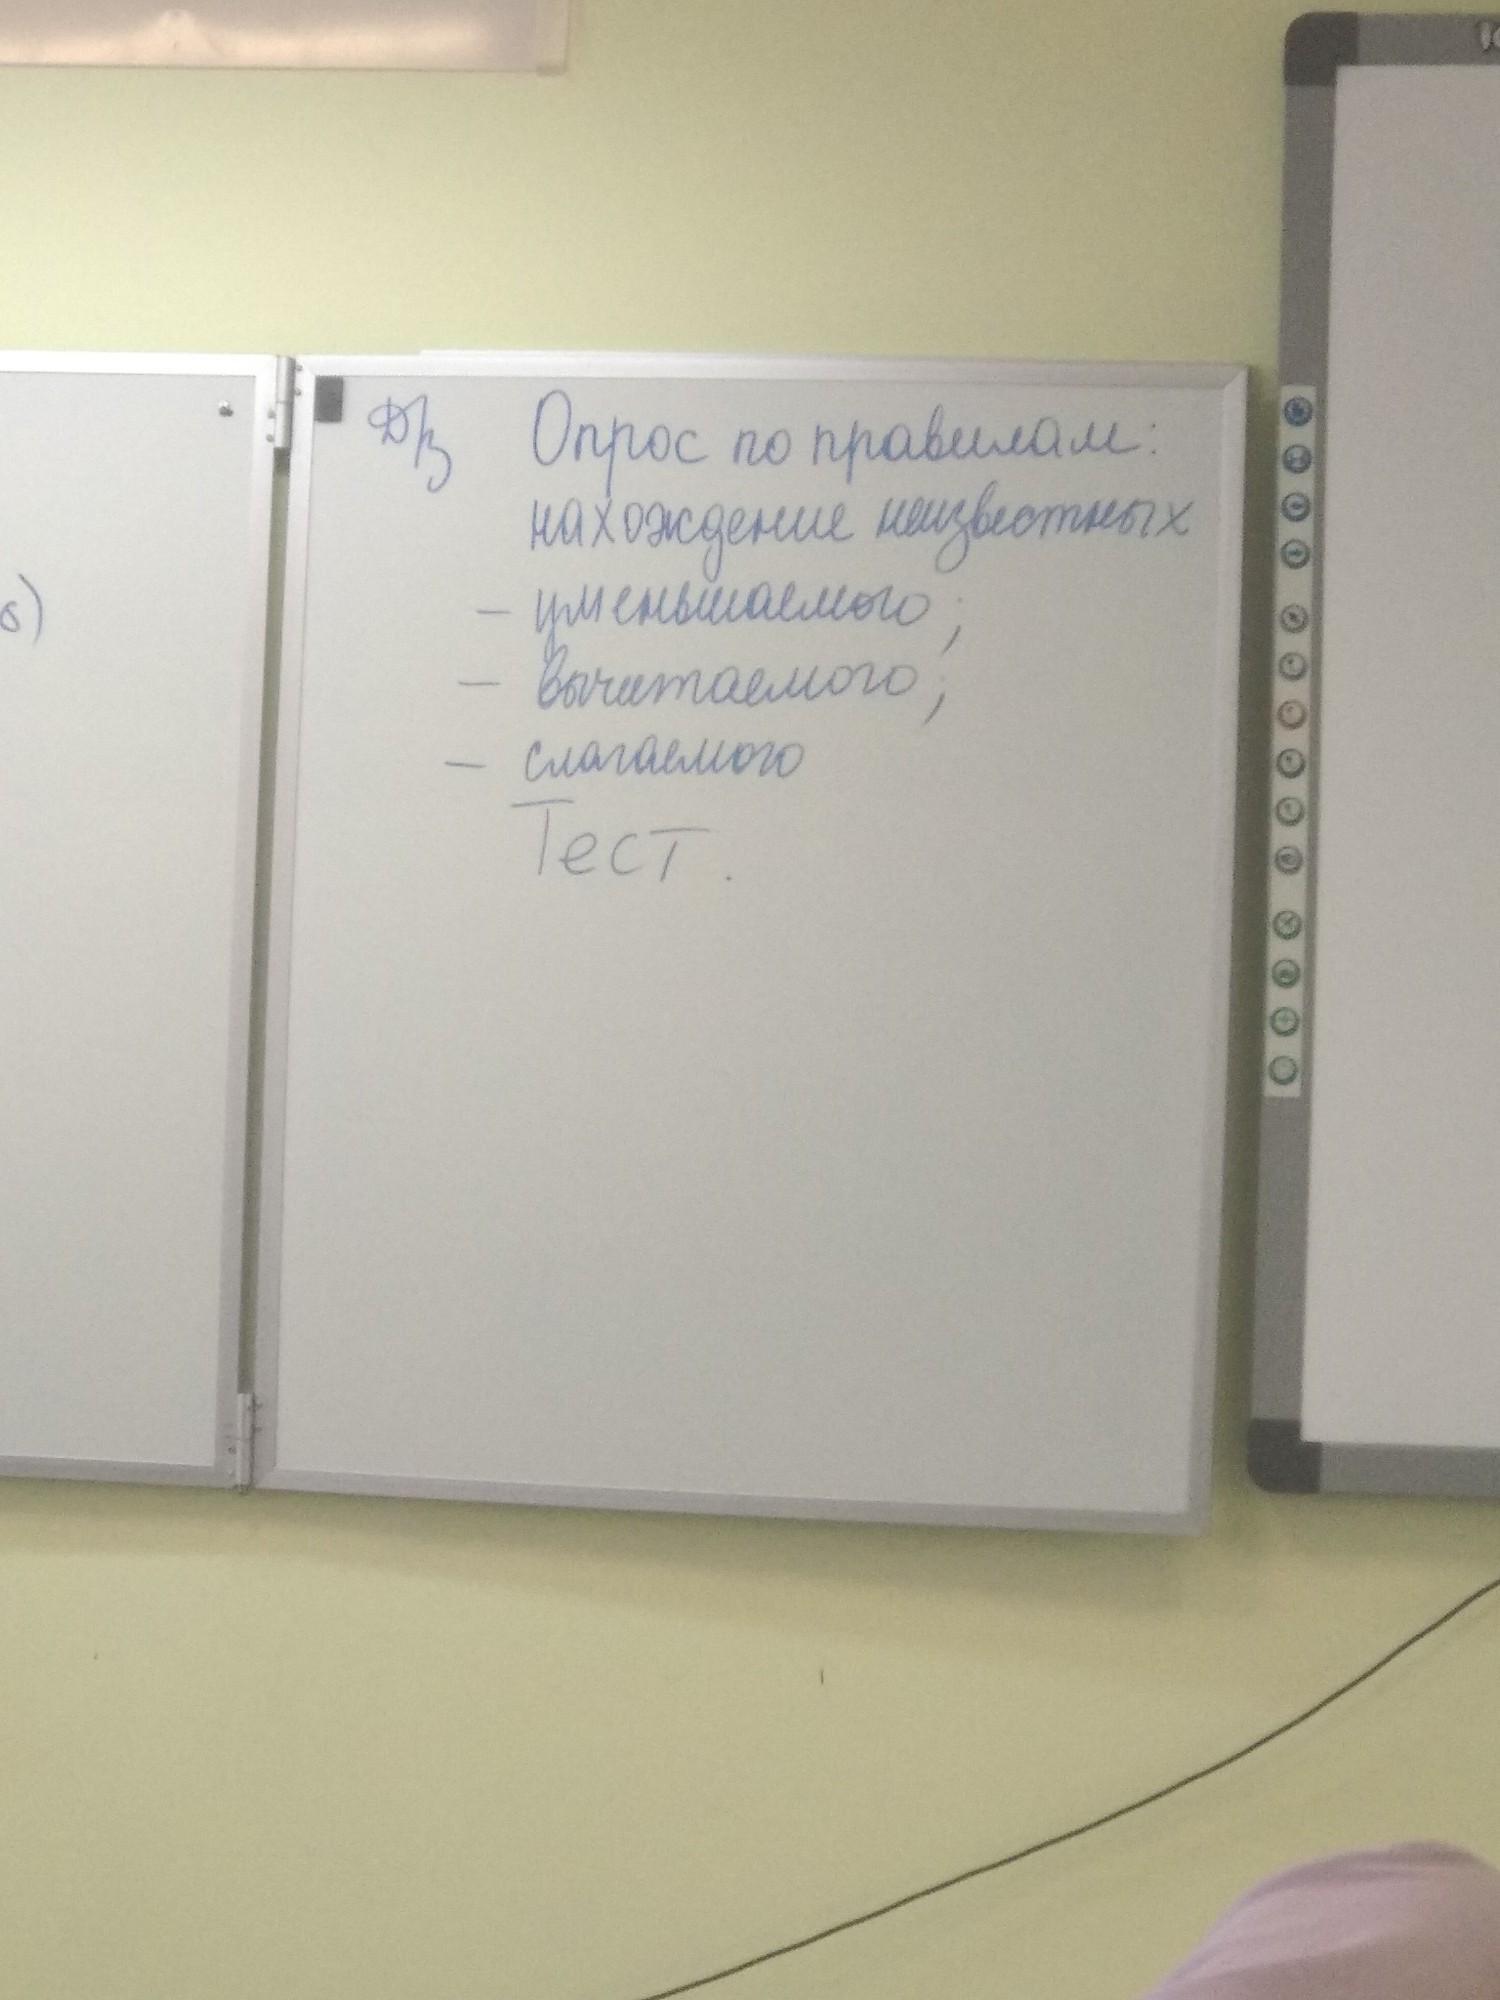 Д/з Опрос по правилам:
нахождение неизвестных
– уменьшаемого;
– вычитаемого;
– слагаемого
Тест.